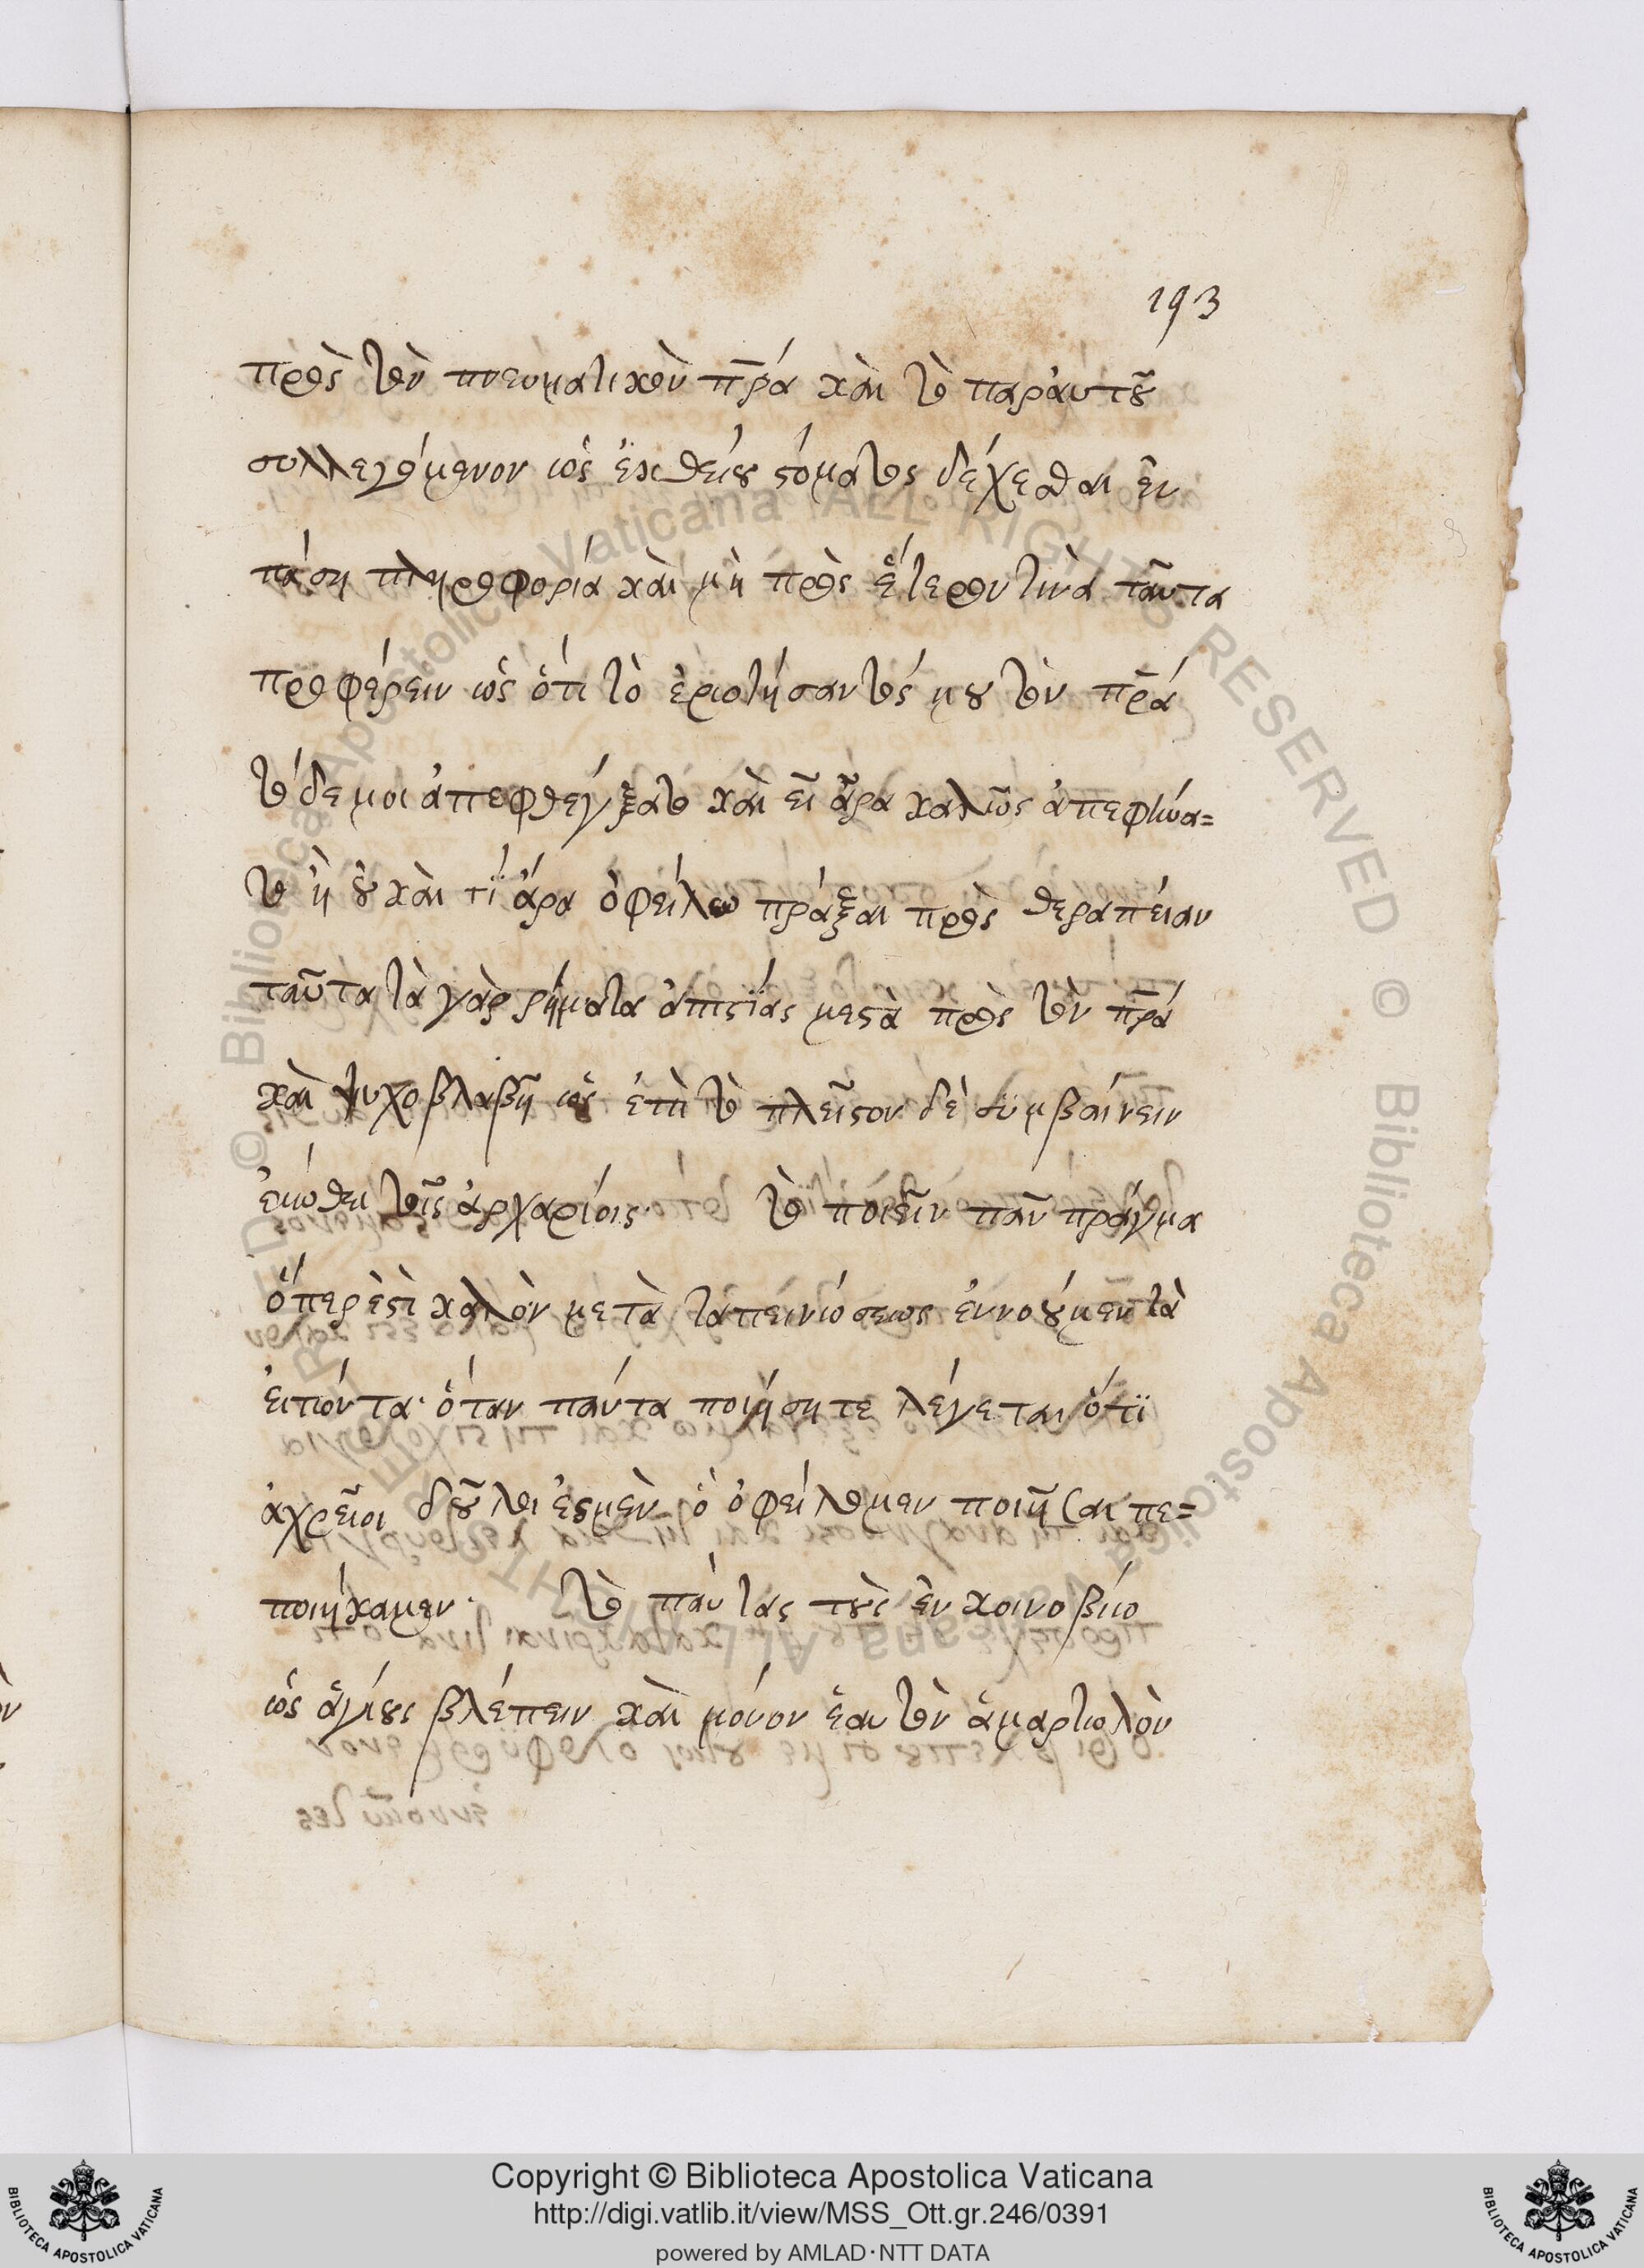 193
πρὸς τὸν πνευματικὸν πρα̅ καὶ τὸ παρἀυτοῦ
συλλεγόμενον ὡς ἐκ θείου στόματος δέχεσθαι ἐν
πάση πληροφορία καὶ μὴ πρὸς ἕτερον τινὰ ταῦτα
προφέρειν ὡς ὅτι τὸ ἐρωτήσαντός μου τὸν πρα̅
τόδε μοι ἀπεφθέγξατο καὶ εἰ ἆρα καλῶς ἀπεφήνα=
το ἢ οὐ καὶ τί ἄρα ὀφείλω πράξαι πρὸς θεραπείαν
ταῦτα τὰ γὰρ ρήματα ἀπιστίας μεστὰ πρὸς τὸν πρα̅
καὶ ψυχοβλαβῆ ὡς ἐπὶ τὸ πλεῖστον δὲ συμβαίνειν
ἐιώθει τοῖς ἀρχαρίοις· τὸ ποιεῖν πᾶν πράγμα
ὅπερ ἐστὶ καλὸν μετὰ ταπεινώσεως ἐννοούμεν τὰ
ἐιπόντα· ὅταν πάντα ποιήσητε λέγεται ὅτϊ
ἀχρεῖοι δοῦλοι ἐσμὲν ὃ ὀφείλομεν ποιῆσαι πε=
ποιήκαμεν· τὸ πάντας τοὺς ἐν κοινοβίω
ὡς ἁγίους βλέπειν καὶ μόνον ἑαυτὸν ἁμαρτωλὸν
Copyright © Biblioteca Apostolica Vaticana
http://digi.vatlib.it/view/MSS_Ott.gr.246/0391
powered by AMLAD·NTT DATA
BIBLIOTECA APOSTOLICA VATICANA
BIBLIOTECA APOSTOLICA VATICANA